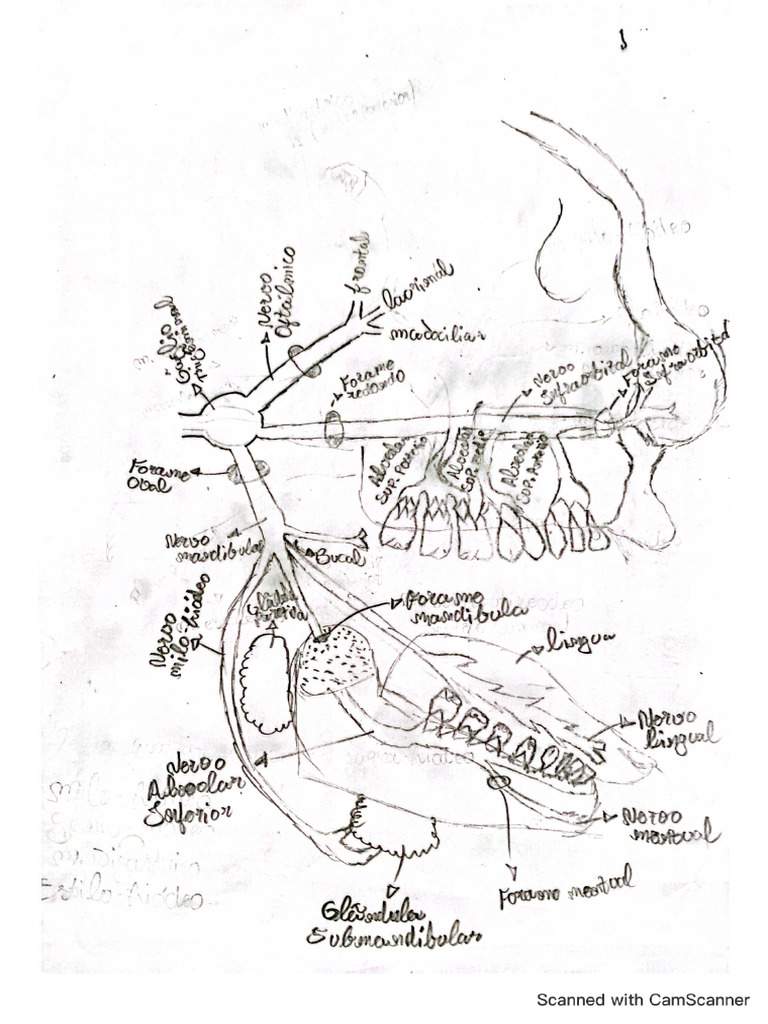 Nervo
Oftálmico
frontal
lacrimal
nasociliar
Forame
redondo
Nervo
Infraorbital
Forame
Infraorbital
Forame
Oval
Alveolar
Sup. Posterio
Alveolar
Sup. médio
Alveolar
Sup. Anterio
Nervo
mandibular
Bucal
Nervo
milo-hioideo
Forame
mandibula
lingua
Nervo
lingual
Nervo
Alveolar
Inferior
Nervo
mentual
Forame mentual
Glândula
Submandibular
Scanned with CamScanner